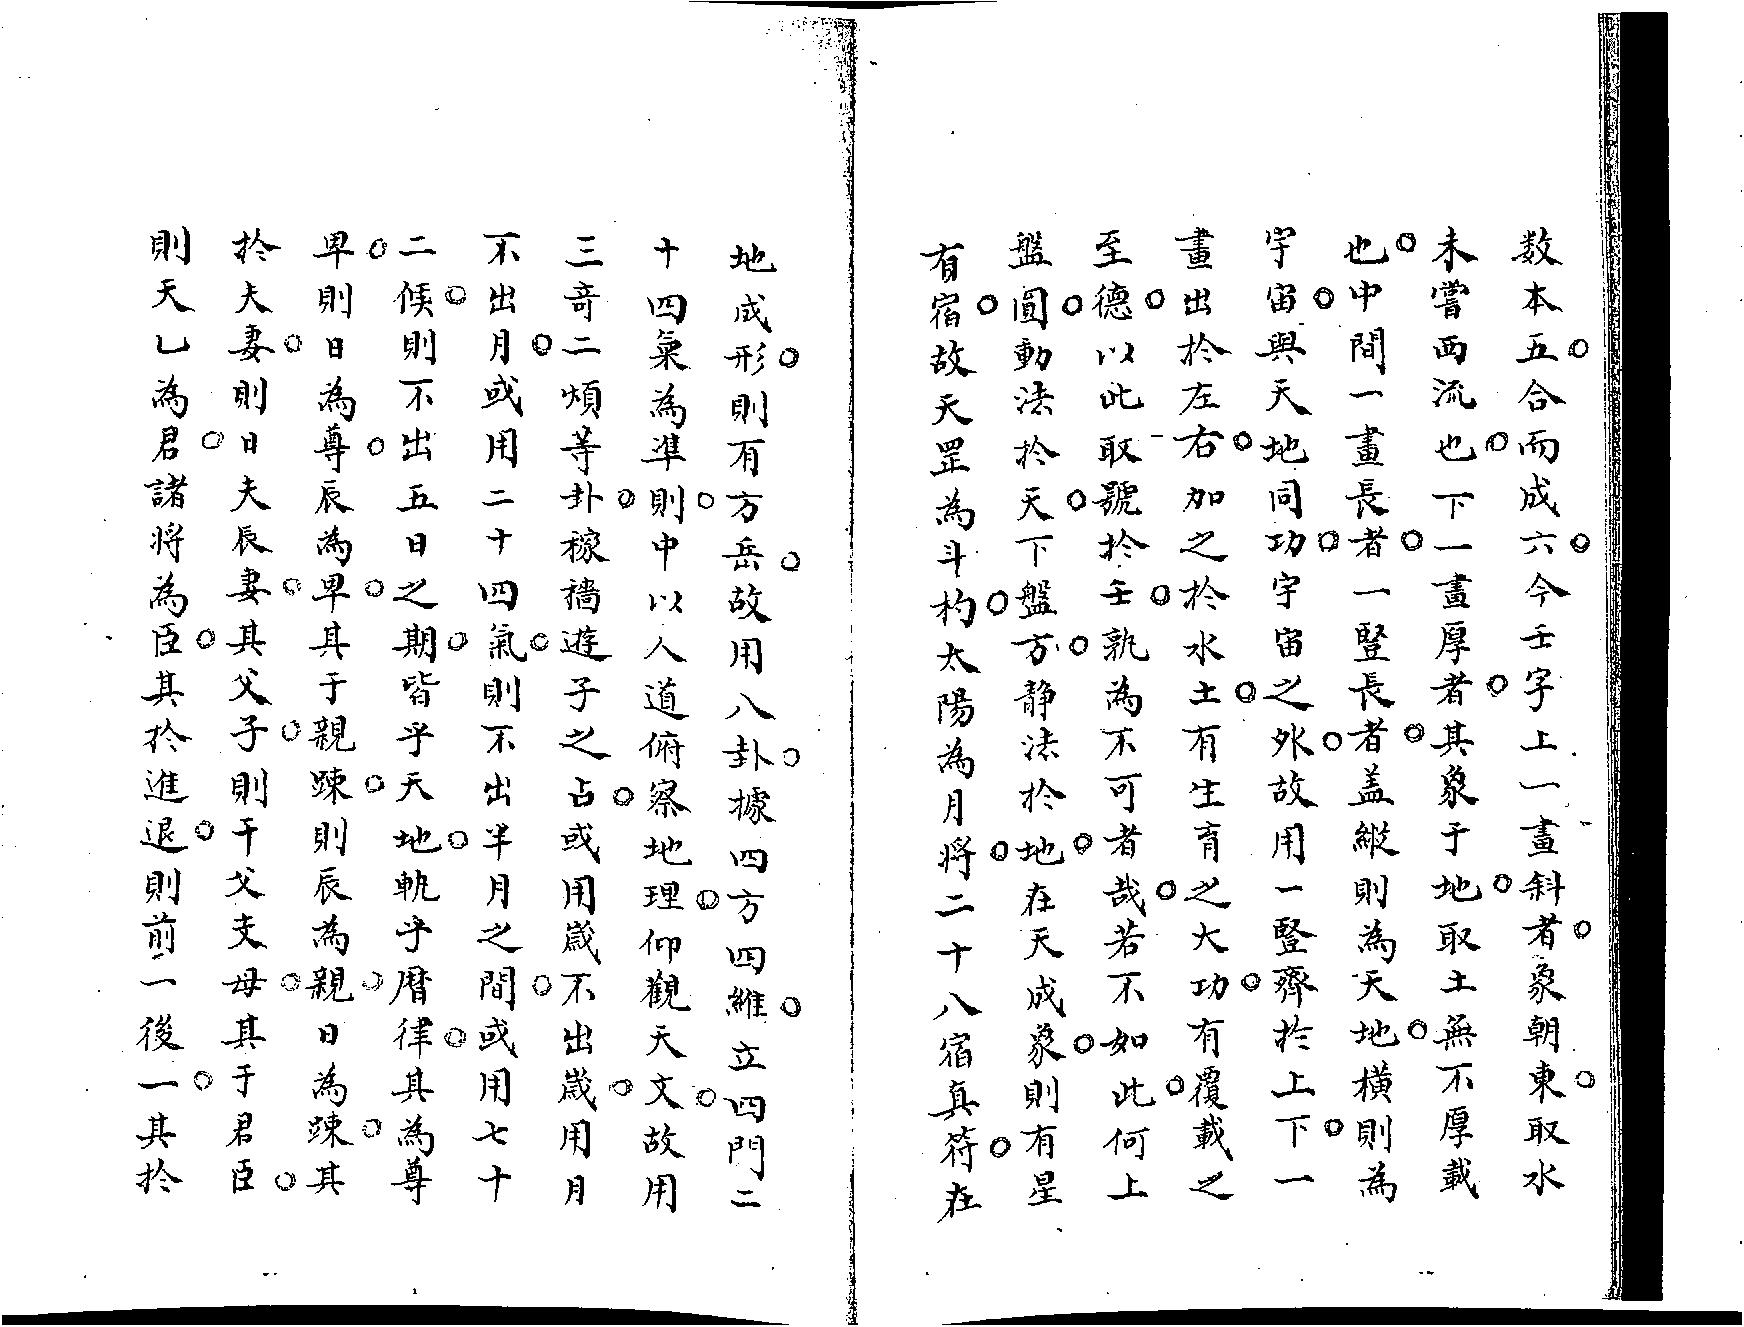 数本五合而成六今壬字上一畫斜者象朝東取水
未嘗西流也下一畫厚者其象于地取土無不厚載
也中間一畫長者一豎長者盖縱則為天地橫則為
宇宙與天地同功宇宙之外故用一豎齊於上下一
畫出於左右加之於水土有生育之大功有覆載之
至德以此取號於壬孰為不可者哉若不如此何上
盤圓動法於天下盤方静法於地在天成象則有星
有宿故天罡為斗杓太陽為月将二十八宿真符在
地成形則有方岳故用八卦據四方四維立四門二
十四氣為準則中以人道俯察地理仰觀天文故用
三竒二煩等卦稼穡遊子之占或用歲不出歲用月
不出月或用二十四氣則不出半月之間或用七十
二候則不出五日之期皆乎天地軌乎曆律其為尊
卑則日為尊辰為卑其于親踈則辰為親日為踈其
於夫妻則日夫辰妻其父子則干父支母其于君臣
則天乚為君諸将為臣其於進退則前一後一其於